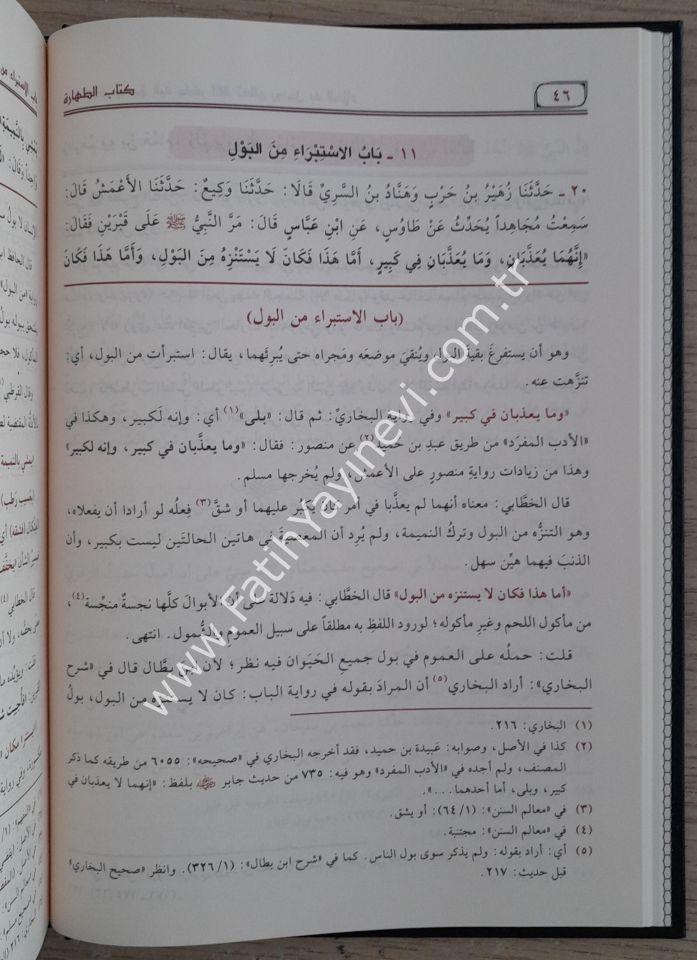 كتاب الطهارة
٤٦
١١ ـ بَابُ الاسْتِبْرَاءِ مِنَ البَوْلِ
٢٠ ـ حَدَّثَنَا زُهَيْرُ بنُ حَرْبٍ وَهَنَّادُ بنُ السَّرِيِّ قَالَا: حَدَّثَنَا وَكِيعٌ: حَدَّثَنَا الأَعْمَشُ قَالَ:
سَمِعْتُ مُجَاهِداً يُحَدِّثُ عَنْ طَاوُسٍ، عَنِ ابْنِ عَبَّاسٍ قَالَ: مَرَّ النَّبِيُّ ﷺ عَلَى قَبْرَيْنِ فَقَالَ:
«إِنَّهُمَا يُعَذَّبَانِ، وَمَا يُعَذَّبَانِ فِي كَبِيرٍ، أَمَّا هَذَا فَكَانَ لَا يَسْتَنْزِهُ مِنَ البَوْلِ، وَأَمَّا هَذَا فَكَانَ
(باب الاستبراء من البول)
وهو أن يستفرغَ بقيةَ البول ويُنقيَ موضعَه ومَجراه حتى يُبرئَهما، يقال: استبرأت من البول، أي:
تنزَّهت عنه.
«وما يعذبان في كبير» وفي رواية البخاريِّ: ثم قال: «بلى»(١) أي: وإنه لَكبير، وهكذا في
«الأدب المفرَد» من طريق عبدِ بن حُميد(٢) عن منصور: فقال: «وما يعذَّبان في كبير، وإنه لكبير»
وهذا من زيادات روايةِ منصورٍ على الأعمش، ولم يُخرجها مسلم.
قال الخطَّابي: معناه أنهما لم يعذَّبا في أمر كان يَكبُر عليهما أو شقَّ(٣) فِعلُه لو أرادا أن يفعلاه،
وهو التنزُّه من البول وتركُ النميمة، ولم يُرِد أن المعصيةَ في هاتين الحالتَين ليست بكبير، وأن
الذنبَ فيهما هيِّن سهل.
«أما هذا فكان لا يستنزه من البول» قال الخطَّابي: فيه دَلالة على أن الأبوالَ كلَّها نجسةٌ منجِّسة(٤)،
من مأكول اللحم وغيرِ مأكوله؛ لورود اللفظِ به مطلقاً على سبيل العمومِ والشُّمول. انتهى.
قلت: حملُه على العموم في بول جميع الحَيَوان فيه نظر؛ لأن ابنَ بطَّال قال في «شرح
البخاري»: أراد البخاري(٥) أن المرادَ بقوله في رواية الباب: كان لا يستنزه من البول، بولُ
(١) البخاري: ٢١٦.
(٢) كذا في الأصل، وصوابه: عَبيدة بن حميد، فقد أخرجه البخاري في «صحيحه»: ٦٠٥٥ من طريقه كما ذكر
المصنف، ولم أجده في «الأدب المفرد» وهو فيه: ٧٣٥ من حديث جابر بلفظ: «إنهما لا يعذبان في
كبير، وبلى، أما أحدهما...».
(٣) في «معالم السنن»: (١/ ٦٤): أو يشق.
(٤) في «معالم السنن»: مجتنبة.
(٥) أي: أراد بقوله: ولم يذكر سوى بول الناس. كما في «شرح ابن بطال»: (١/ ٣٢٦). وانظر «صحيح البخاري»
قبل حديث: ٢١٧.
www.FatihYayinevi.com.tr